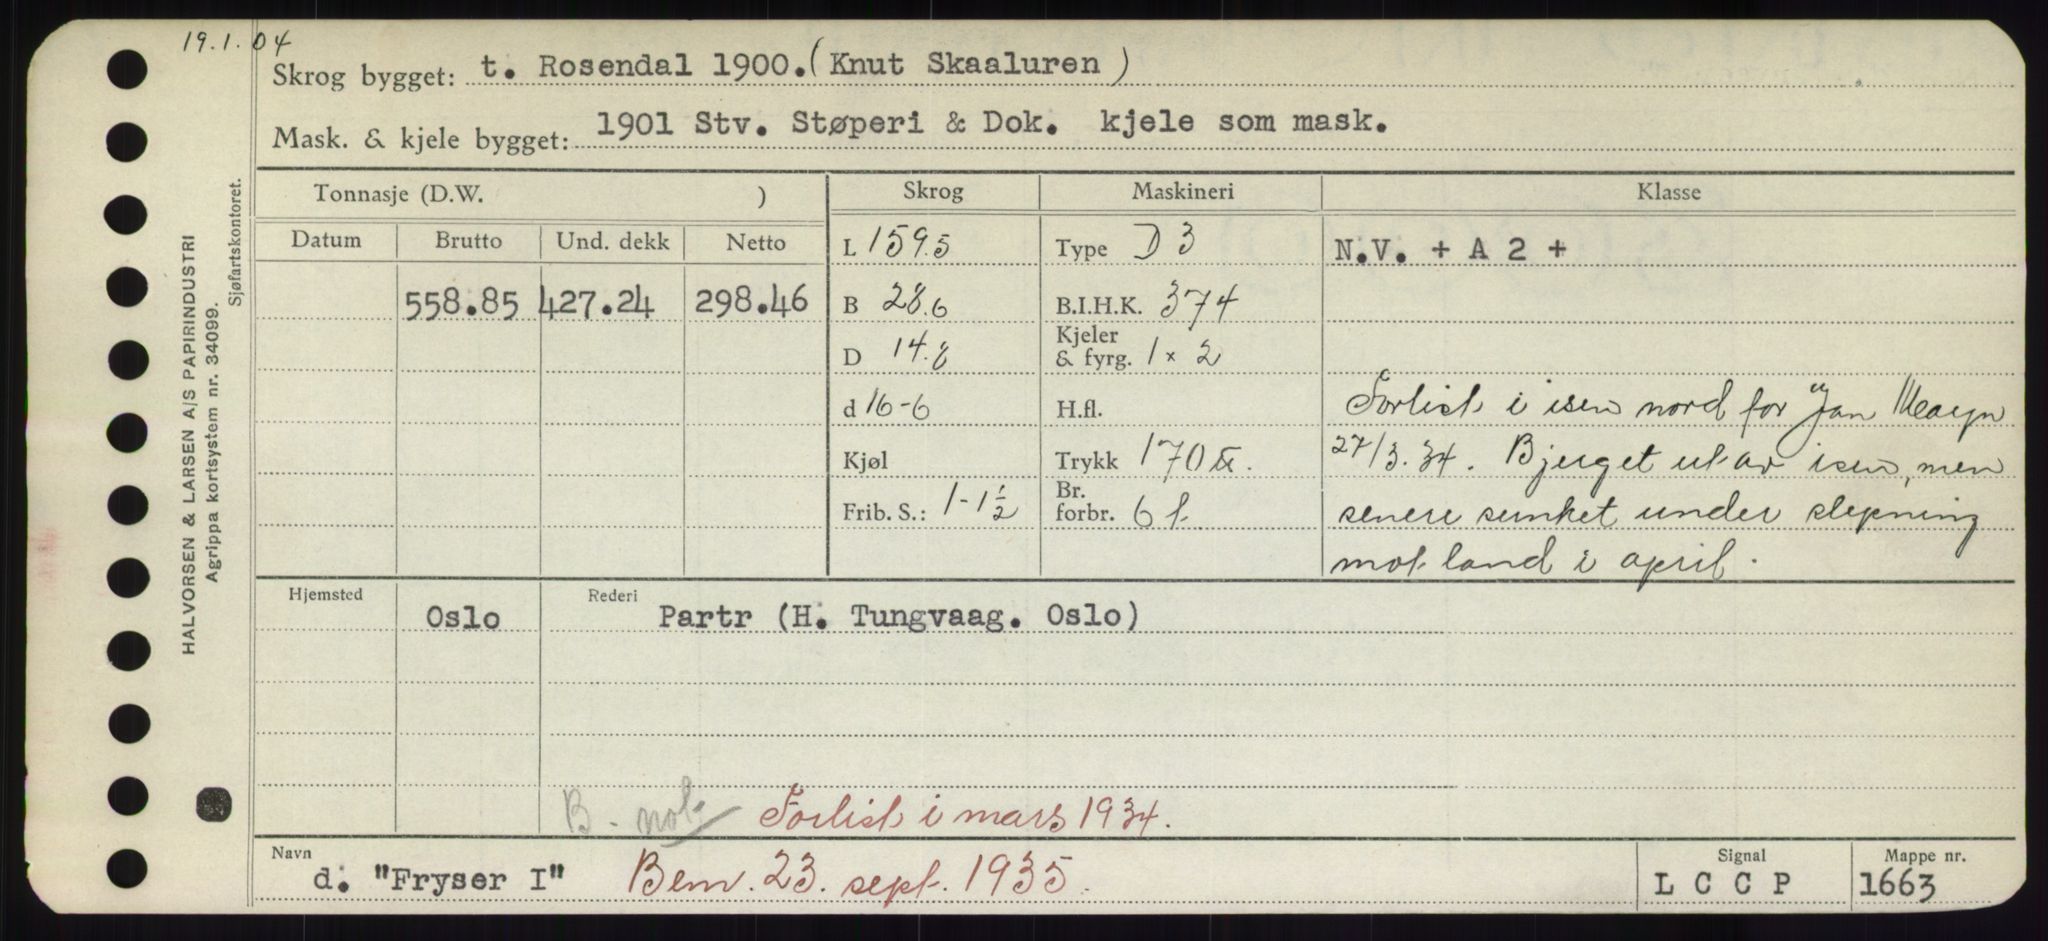 19.1.04
Skrog bygget: t. Rosendal 1900. (Knut Skaaluren)
Mask. & kjele bygget: 1901 Stv. Støperi & Dok. kjele som mask.
Tonnasje (D.W. ) Skrog Maskineri Klasse
Datum Brutto Und. dekk Netto L 159.5 Type D 3 N.V. + A 2 +
558.85 427.24 298.46 B 28.6 B.I.H.K. 374
D 14.8 Kjeler & fyrg. 1 x 2
d 16-6 H.fl. Forlist i isen nord for Jan Mayn
Kjøl Trykk 170 27/3.34. Bjerget ut av isen, men
Frib. S.: 1-1½ Br. forbr. 6 t. senere sunket under slepning
mot land i april.
Hjemsted Oslo Rederi Partr (H. Tungvaag. Oslo)
B. not Forlist i mars 1934.
Navn d. "Fryser I" Bem. 23. sept. 1935. Signal L C C P Mappe nr. 1663
HALVORSEN & LARSEN A/S PAPIRINDUSTRI
Agrippa kortsystem nr. 34099.
Sjøfartskontoret.